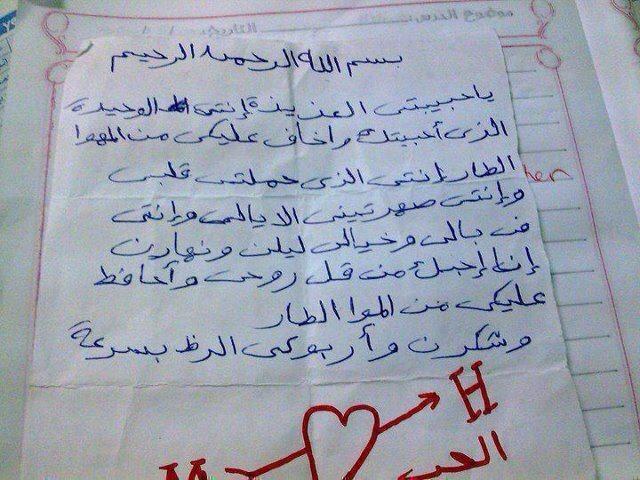 موضوع الدرس
التاريخ / /
بسم الله الرحمن الرحيم
ياحبيبتى العزيزة إنتى الوحيدة
الذى أحبيتك واخاف عليكى من الهوا
الطار إنتى الذى حملتى قلبى
وإنتى صهرتينى الايالى وإنتى
فى بالى وخيالى ليلن ونهارن
إنا إحبك من قل روحى وأحافظ
عليكى من الهوا الطار
وشكرن وأربوكى الرظ بسرعة
H
الحب
M